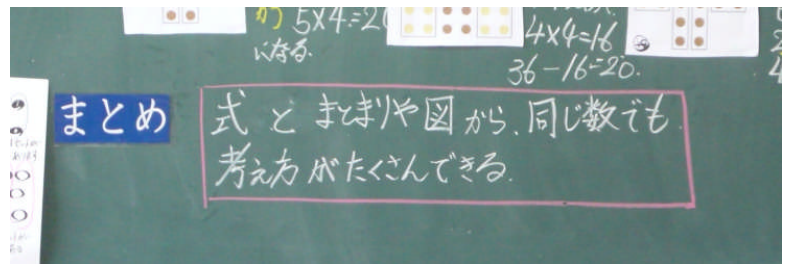 5×4=20
になる.
4×4=16
36-16=20.
まとめ
式とまとまりや図から、同じ数でも
考え方がたくさんできる.